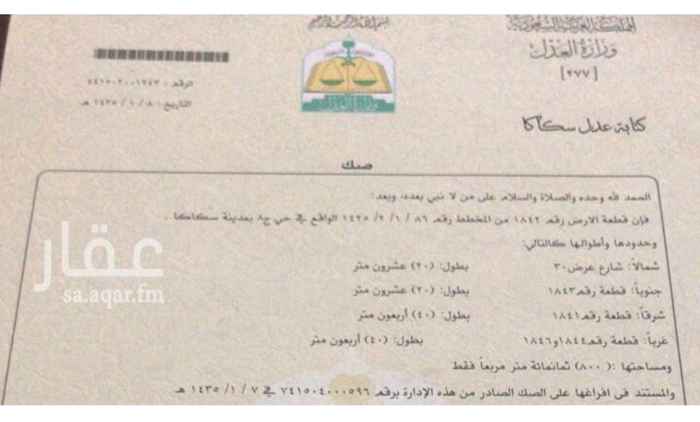 بسم الله الرحمن الرحيم
المملكة العربية السعودية
وزارة العدل
[٢٧٧]
كتابة عدل سكاكا
التاريخ: ٨ / ١ / ١٤٣٥ هـ
وزارة العدل
صك
الحمد لله وحده والصلاة والسلام على من لا نبي بعده، وبعد:
فإن قطعة الارض رقم ١٨٤٢ من المخطط رقم ٨٦ / ١ / ٢ / ١٤٢٥ الواقع في حي ج٨ بمدينة سكاكا .
وحدودها وأطوالها كالتالي:
شمالاً: شارع عرض٣٠ بطول: (٢٠) عشرون متر
جنوباً: قطعة رقم ١٨٤٣ بطول: (٢٠) عشرون متر
شرقاً: قطعة رقم ١٨٤١ بطول: (٤٠) أربعون متر
غرباً: قطعة رقم ١٨٤٤و١٨٤٦ بطول: (٤٠) أربعون متر
ومساحتها :( ٨٠٠) ثمانمائة متر مربعاً فقط
والمستند في افراغها على الصك الصادر من هذه الإدارة برقم ٧٤١٥٠٤٠٠٠٥٩٦ في ٧ / ١ / ١٤٣٥ هـ
عقار
sa.aqar.fm